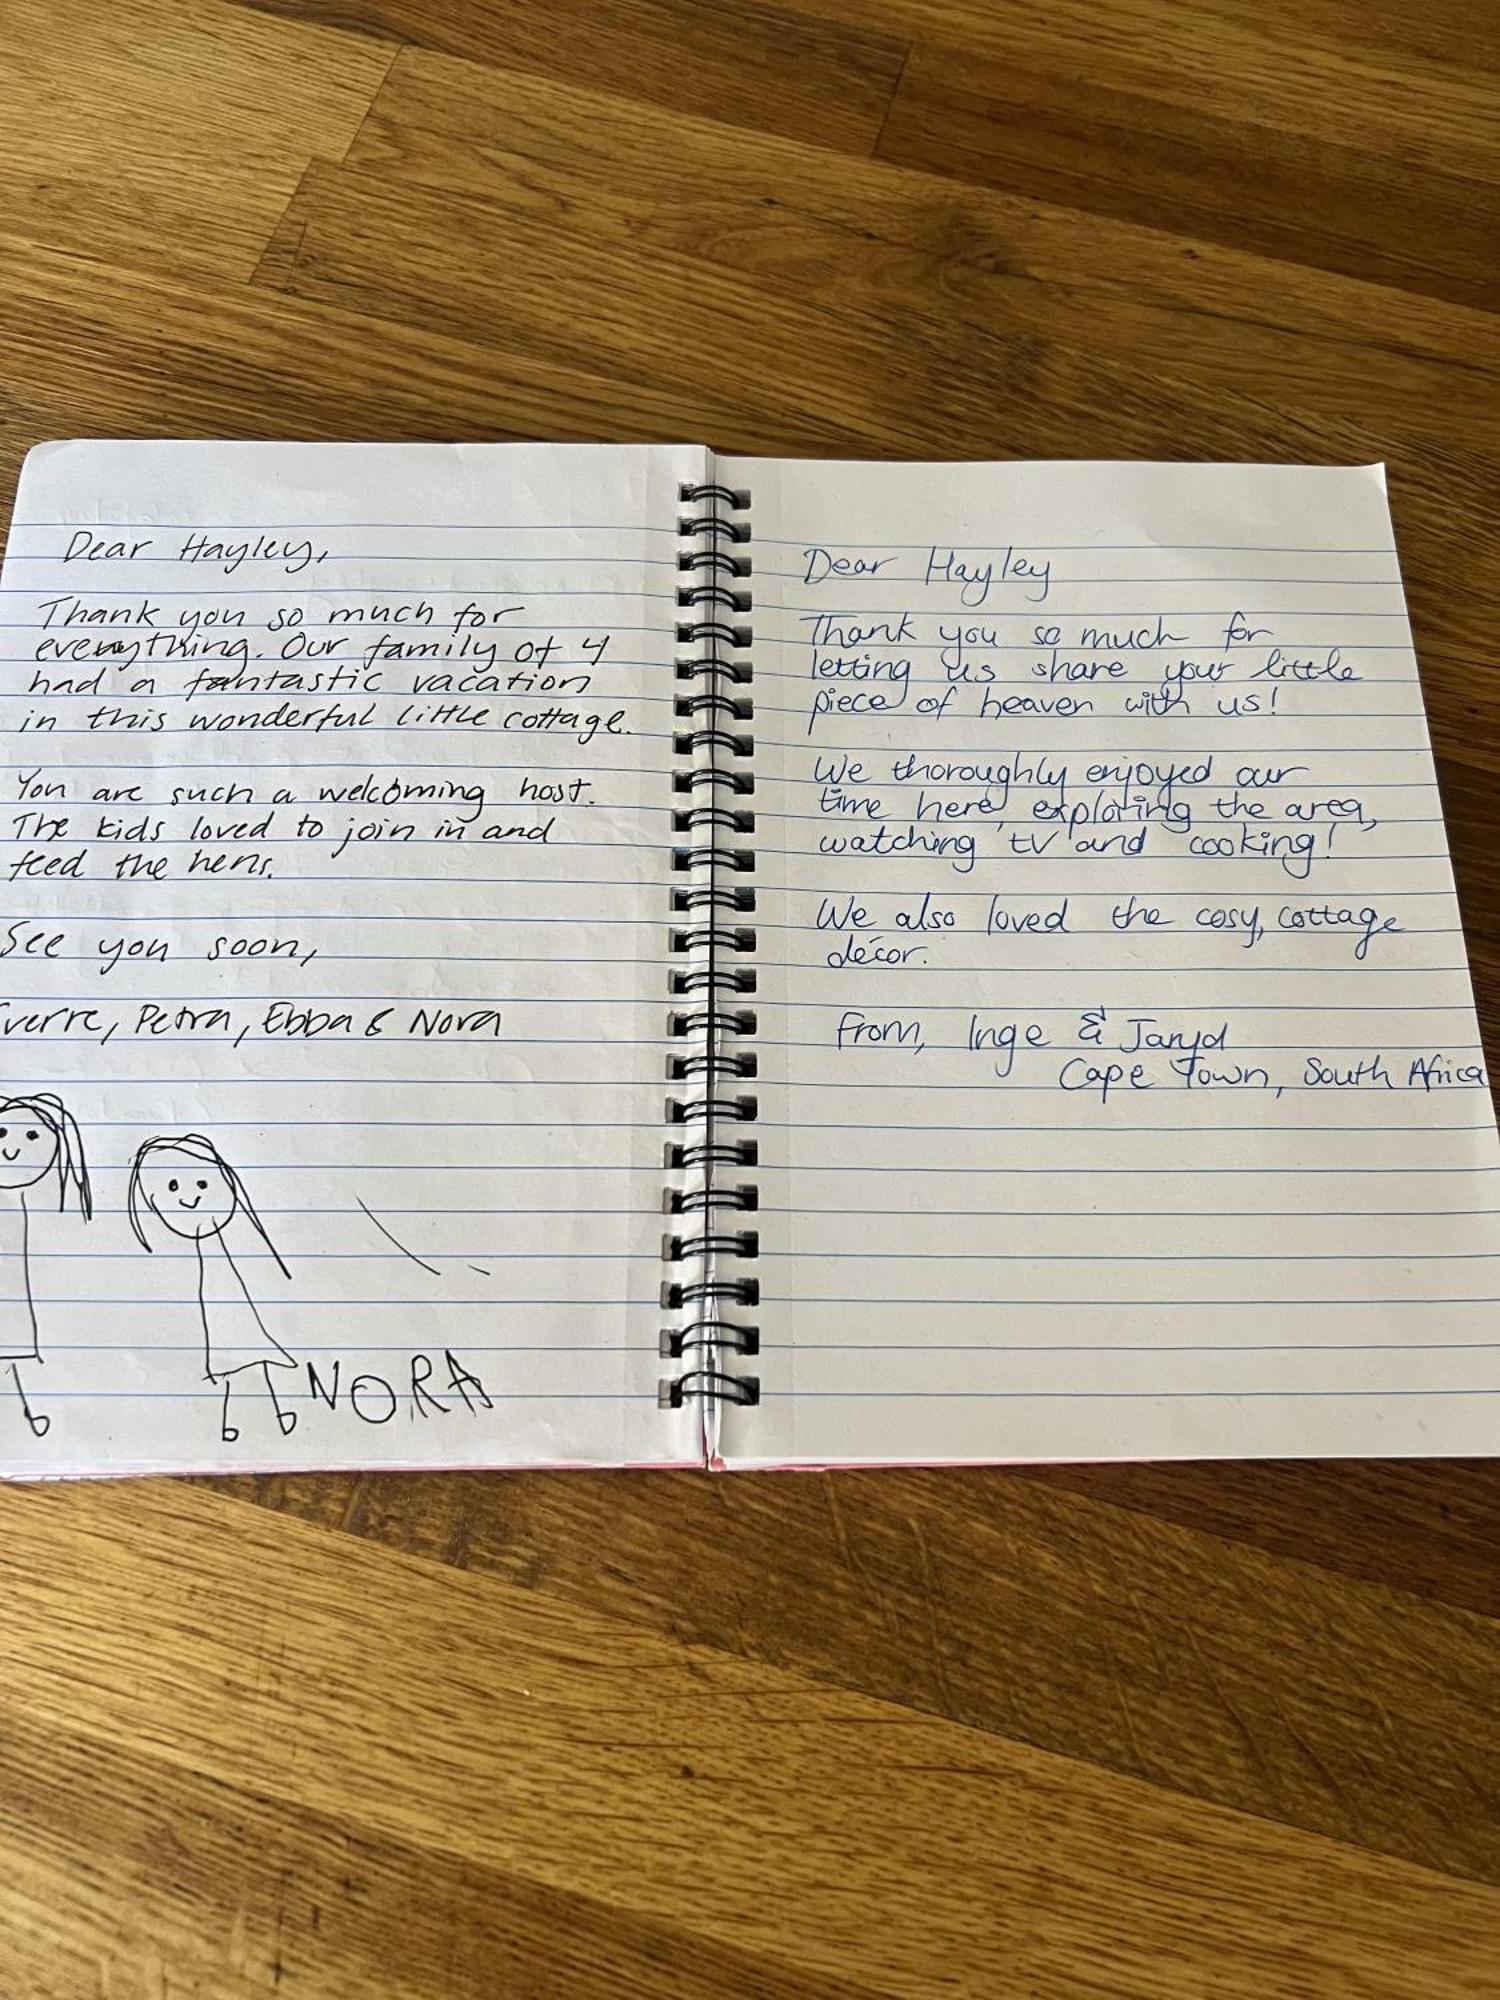 Dear Hayley,
Thank you so much for
everything. Our family of 4
had a fantastic vacation
in this wonderful little cottage.
You are such a welcoming host.
The kids loved to join in and
feed the hens.
See you soon,
Petra, Ebba & Nora
NORA
Dear Hayley
Thank you so much for
letting us share your little
piece of heaven with us!
We thoroughly enjoyed our
time here, exploring the area,
watching tv and cooking!
We also loved the cosy, cottage
décor.
From, Inge & Jaryd
Cape Town, South Africa